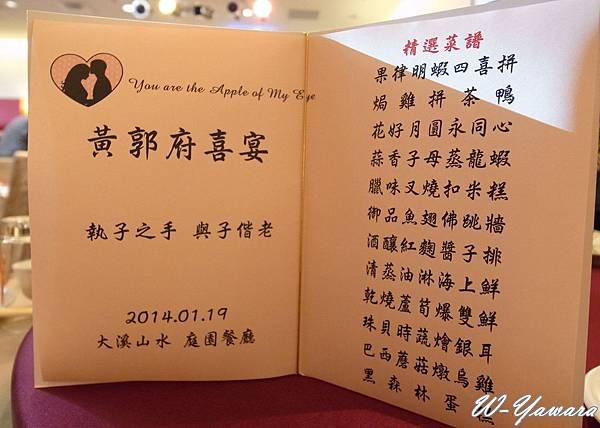 You are the Apple of My Eye
黃郭府喜宴
執子之手 與子偕老
2014.01.19
大溪山水 庭園餐廳
精選菜譜
果律明蝦四喜拼
焗雞拼茶鴨
花好月圓永同心
蒜香子母蒸龍蝦
臘味叉燒扣米糕
御品魚翅佛跳牆
酒釀紅麴醬子排
清蒸油淋海上鮮
乾燒蘆筍爆雙鮮
珠貝時蔬燴銀耳
巴西蘑菇燉烏雞
黑森林蛋糕
W-Yawara